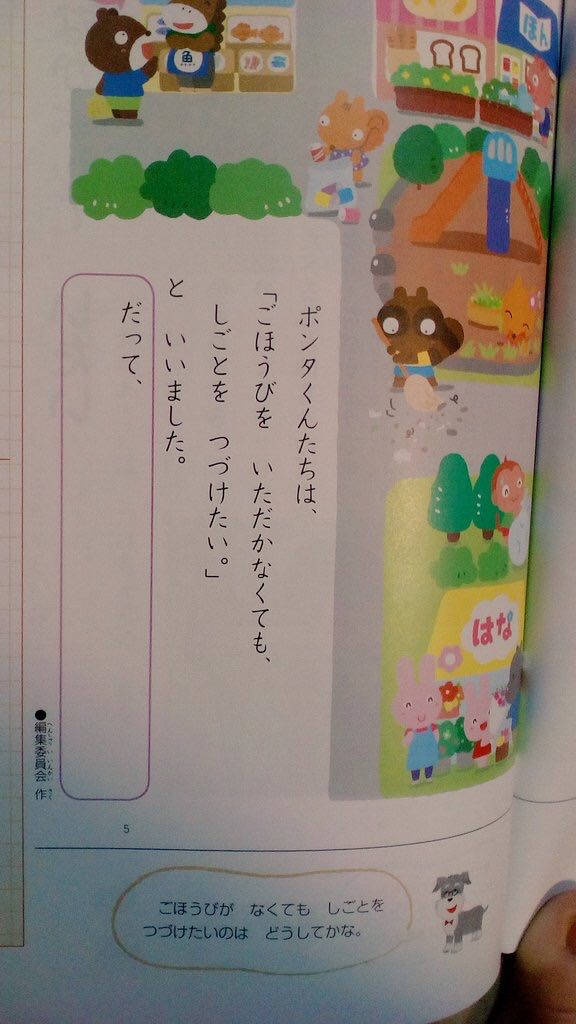 ほん
魚
はな
ポンタくんたちは、
「ごほうびを　いただかなくても、
しごとを　つづけたい。」
と　いいました。
だって、
●編集委員会 作
へんしゅう いいんかい さく
5
ごほうびが　なくても　しごとを
つづけたいのは　どうしてかな。